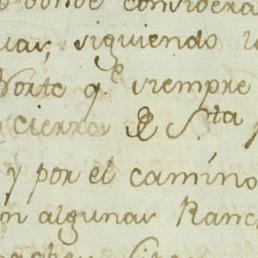 donde considera
uar, siguiendo
Norte q.e siempre
cierros de S.ta
y por el camino
en algunas Ranc